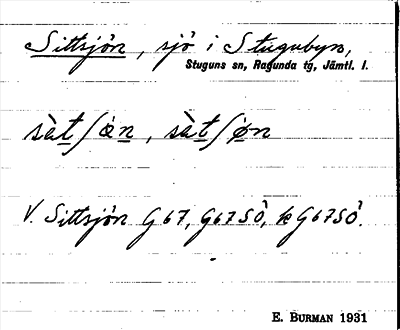 Sittsjön, sjö i Stugubyn,
Stuguns sn, Ragunda tg, Jämtl. l.
sàt∫ön, sàt∫øn
V. Sittsjön G67, G67SÖ, kG67SÖ.
E. BURMAN 1931